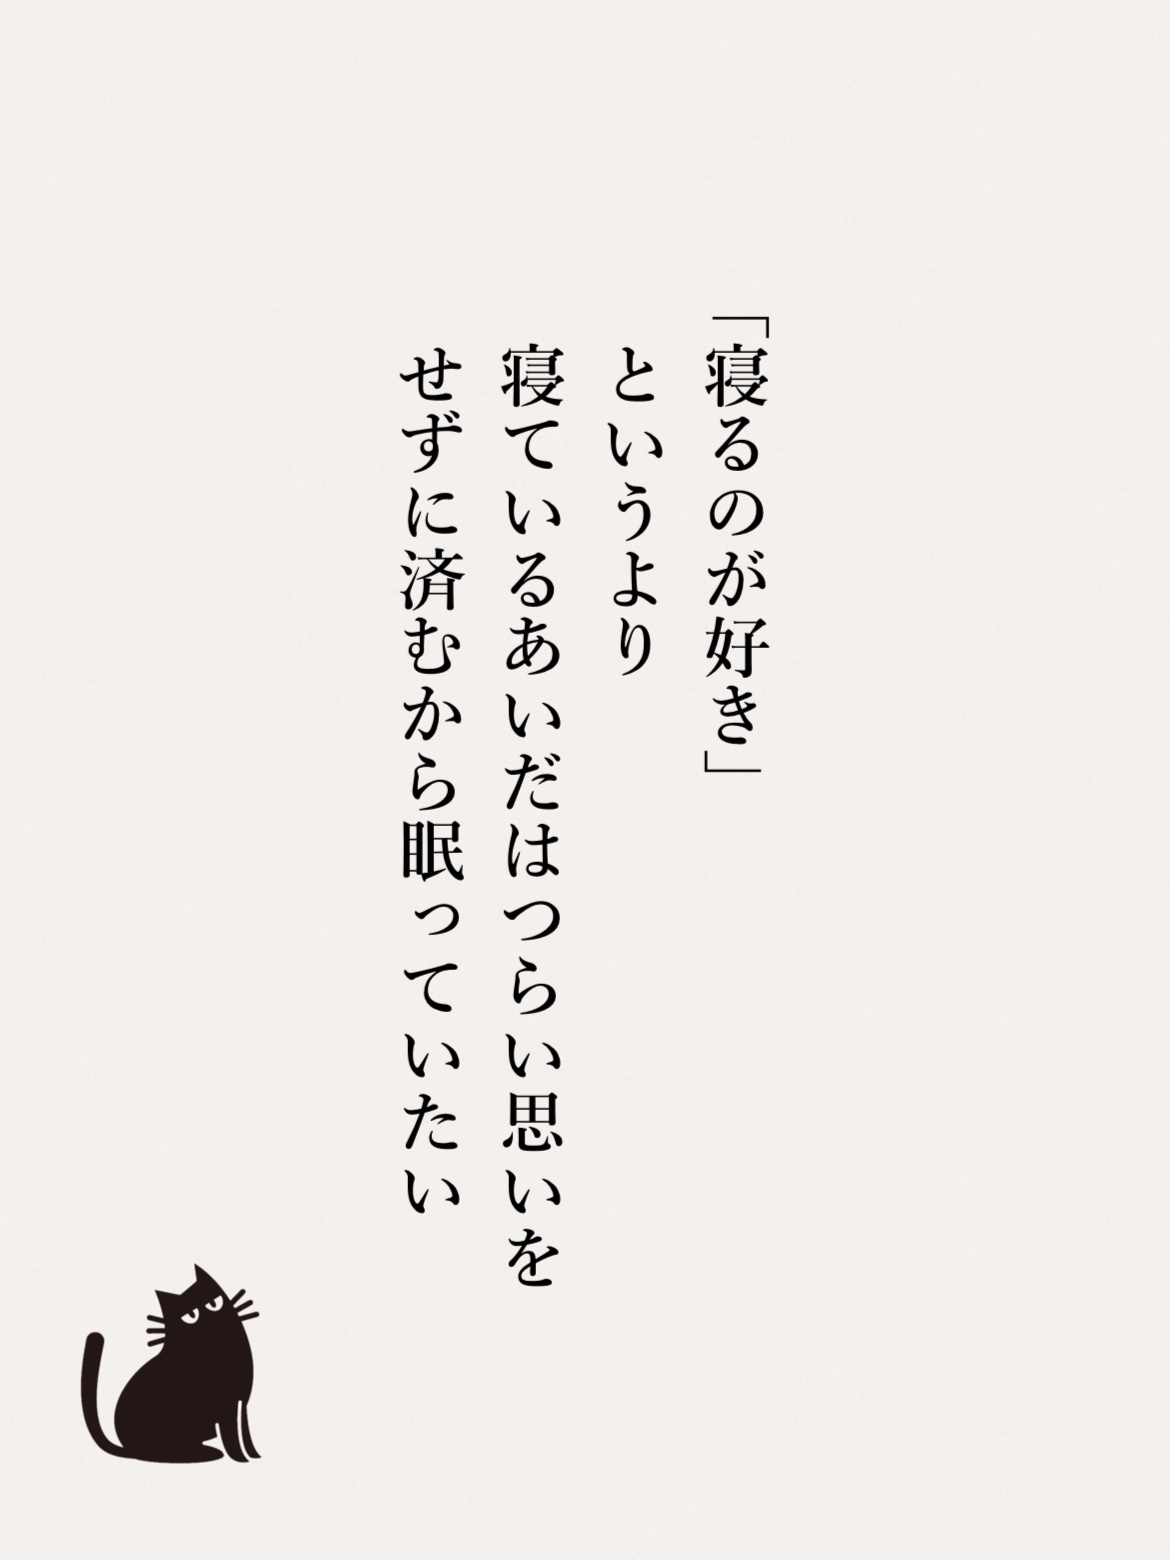 「寝るのが好き」
というより
寝ているあいだはつらい思いを
せずに済むから眠っていたい